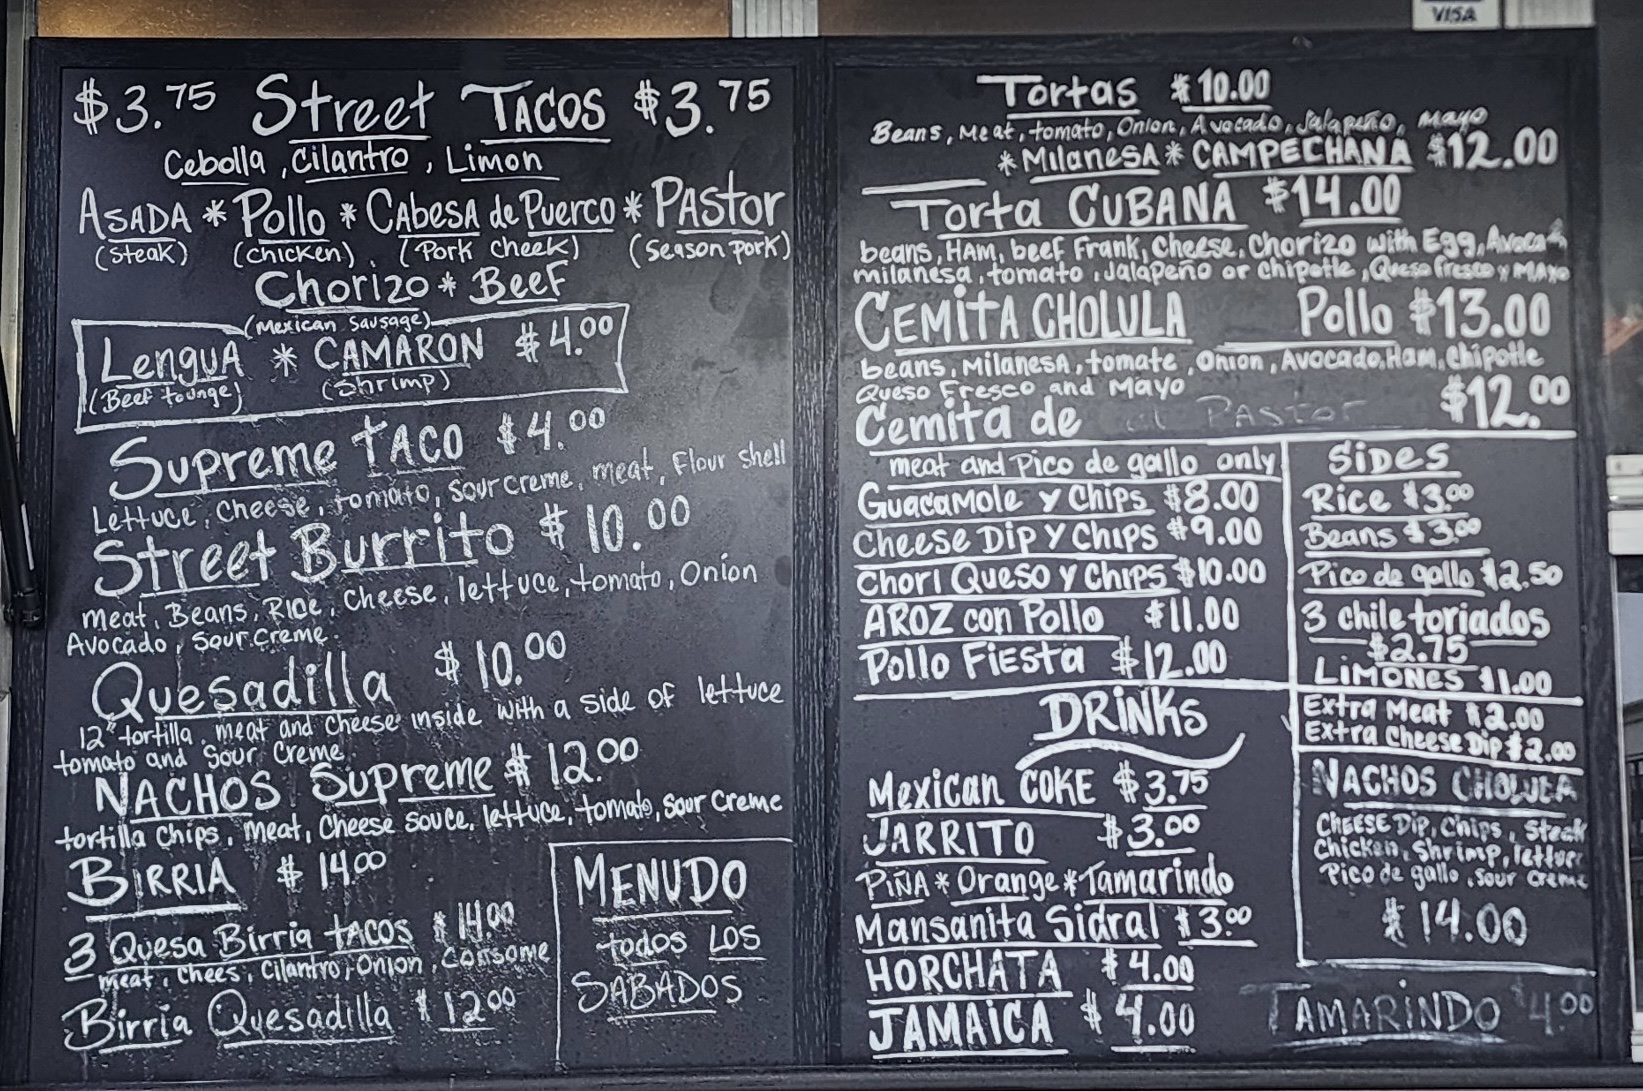 VISA
$3.75 Street TACOS $3.75
Cebolla, Cilantro, Limon
ASADA * Pollo * CABESA de Puerco * PASTor
(Steak) (chicken) (Pork cheek) (season pork)
Chorizo * Beef
(Mexican Sausage)
LenguA * CAMARON $4.00
(Beef tounge) (Shrimp)
Supreme tACO $4.00
Lettuce, Cheese, tomato, sour creme, meat, Flour shell
Street Burrito $10.00
meat, Beans, Rice, Cheese, lettuce, tomato, Onion
Avocado, sour creme.
Quesadilla $10.00
12" tortilla, meat and cheese inside with a side of lettuce
tomato and Sour Creme.
NACHOS Supreme $12.00
tortilla chips, meat, cheese souce, lettuce, tomato, sour creme
BIRRIA $14.00
3 Quesa Birria tacos $14.00
meat, Chees, Cilantro, Onion, consome
Birria Quesadilla $12.00
MENUDO
todos LOS
SABADOS
Tortas $10.00
Beans, Meat, tomato, Onion, Avocado, Jalapeño, Mayo
*MilanesA* CAMPECHANA $12.00
Torta CUBANA $14.00
beans, HAM, beef Frank, Cheese, Chorizo with Egg, Avoca
milanesa, tomato, Jalapeño or chipotle, Queso fresco y MAYo
CEMITA CHOLULA Pollo $13.00
beans, MilanesA, tomate, Onion, Avocado, Ham, chipotle
Queso Fresco and Mayo
Cemita de al PASTor $12.00
meat and Pico de gallo only
GuacaMole y Chips $8.00
Cheese Dip y Chips $9.00
Chori Queso y Chips $10.00
AROZ con Pollo $11.00
Pollo Fiesta $12.00
SiDES
Rice $3.00
Beans $3.00
Pico de gallo $2.50
3 chile toriados
$2.75
LiMONes $1.00
Extra Meat $2.00
Extra Cheese Dip $2.00
DRiNKs
Mexican COKE $3.75
JARRITO $3.00
PiÑA * Orange * Tamarindo
Mansanita Sidral $3.00
HORCHATA $4.00
JAMAiCA $4.00
NACHOS
CHEESE Dip, Chips, Steak
Chicken, Shrimp, lettuce
Pico de gallo, sour creme
$14.00
TAMARiNDO $4.00